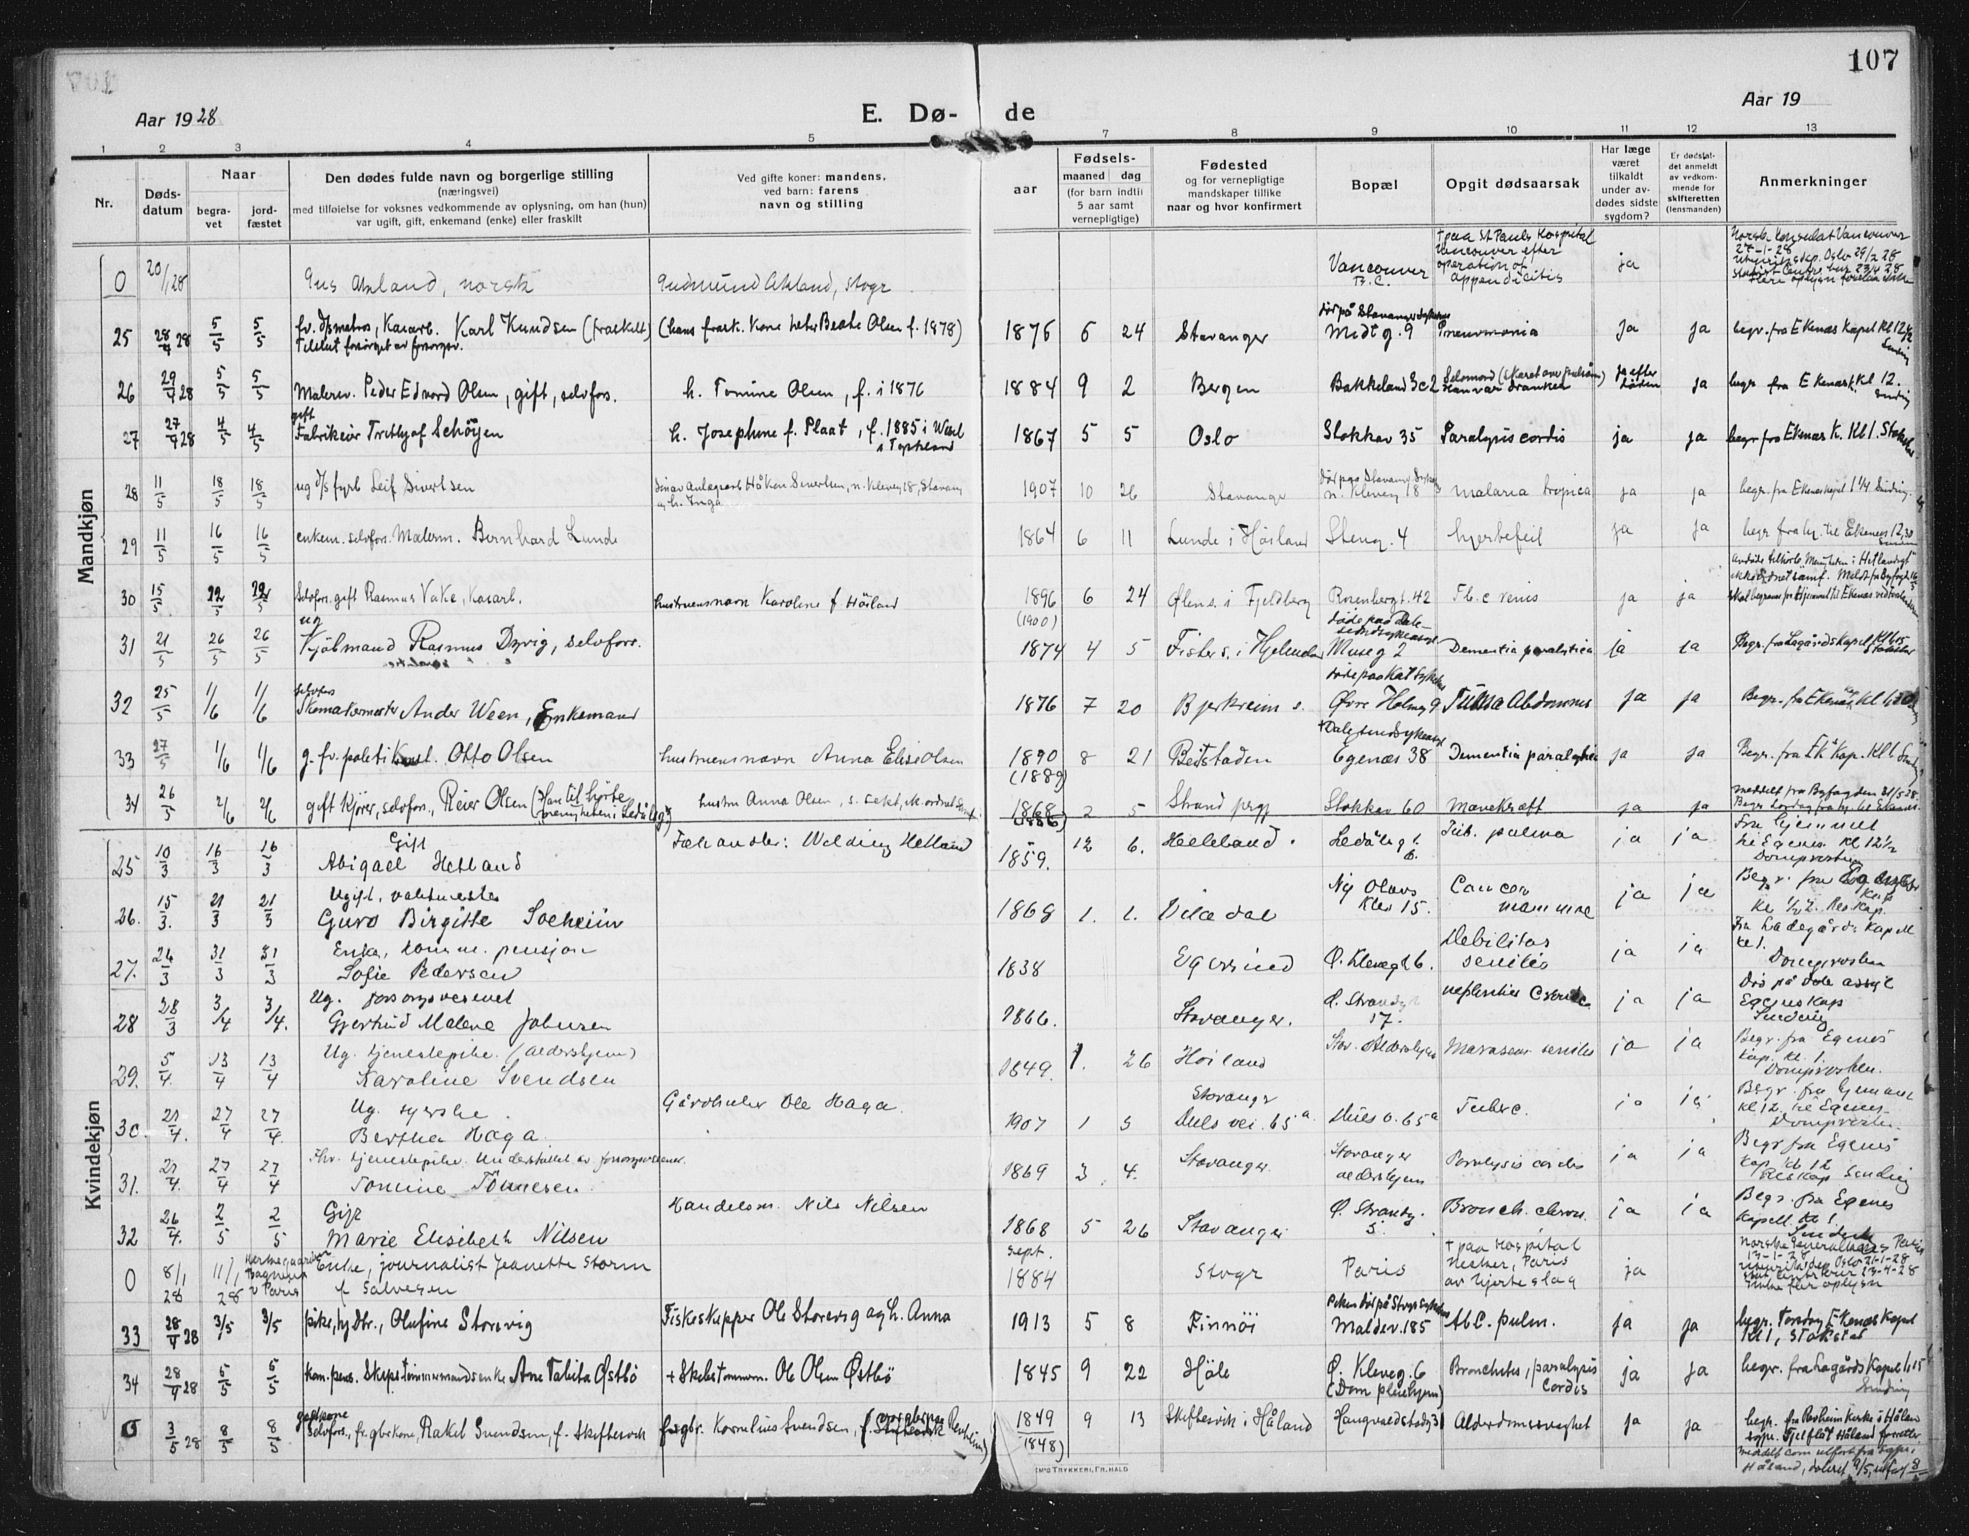 107
Aar 1928
E. Dø-
de
Aar 19
1 2 3 4 5 7 8 9 10 11 12 13
Nr.
Døds-
datum
Naar
begra-
vet
jord-
fæstet
Den dødes fulde navn og borgerlige stilling
(næringsvei)
med tilføielse for voksnes vedkommende av oplysning, om han (hun)
var ugift, gift, enkemand (enke) eller fraskilt
Ved gifte koner: mandens,
ved barn: farens
navn og stilling
Fødsels-
aar
maaned dag
(for barn indtil
5 aar samt
vernepligtige)
Fødested
og for vernepligtige
mandskaper tillike
naar og hvor konfirmert
Bopæl
Opgit dødsaarsak
Har læge
været
tilkaldt
under av-
dødes sidste
sygdom?
Er dødsfal-
det anmeldt
av vedkom-
mende for
skifteretten
(lensmanden)
Anmerkninger
Mandkjøn
0 20/1 28 Gus Akland, norsk Gudmund Akland, Stvgr. Vancouver B.C. + paa St Pauls Hospital Vancouver efter operation of appendicitis ja Norsk Konsulat Vancouver 27-1-28
25 28/4 28 5/5 5/5 fv. d/s matros, Kasarb. Karl Knudsen (fraskilt) (hans frask. kone heter Beate Olsen f. 1878) 1876 6 24 Stavanger Midtg. 9 Pneumonia ja ja begr. fra Ekenæs Kapel Kl 12 1/2 Sinding
26 29/4 28 5/5 5/5 Malersv. Peder Edvard Olsen, gift, selvfors. h. Tomine Olsen, f. i 1876 1884 9 2 Bergen Bakkeland 3c2 Selvmord ja efter døden ja begr. fra Ekenæs K. Kl 12. Sinding
27 27/4 28 4/5 4/5 gift Fabrikeier Trethjof Schöyen h. Josephine f. Plaat, f. 1885 i Wesel i Tyskland 1867 5 5 Oslo Stokkav 35 Paralysis cordis ja ja begr fra Ekenæs K. Kl 1. Stokstad
28 11/5 18/5 18/5 ug d/s fyrb Leif Sivertsen Sön av Anlægsarb Håkon Sivertsen, n. Kleveg 18, Stavang og h. Inga 1907 10 26 Stavanger n. Kleveg 18 malaria tropica ja ja begr. fra Ekenæs Kapel 1 1/4 Sinding.
29 11/5 16/5 16/5 enkem. selvfors. Malerm. Bernhard Lunde 1864 6 11 Lunde i Høiland Steng. 4 hjertefeil ja ja begr fra hj. til Ekenæs 12,30
30 15/5 22/5 22/5 Selvfors. gift Rasmus Vake, Kasarb. hustruens navn Karoline f Høiland 1896 (1900) 6 24 Ølens. i Fjeldberg Rosenbergt. 42 Tb. c renis ja ja
31 21/5 26/5 26/5 ug Kjøbmand Rasmus Dyvig, selvfors. 1874 4 5 Fisters. i Hjelmeland døde paa Dale sindssykeasyl Museg 2 Dementia paralitica ja ja Begr. fra Lagårds Kapel Kl 1 15 Stokstad
32 25/5 1/6 1/6 selvfors Skomakermester Ander Ween, Enkemand 1876 7 20 Bjerkreim s. Øvre Holmeg 9 ja ja Begr. fra Ekenæs kp Kl 1,30
33 27/5 1/6 1/6 g. fv. politikonst. Otto Olsen hustruens navn Anna Elise Olsen 1890 (1889) 8 21 Beitstaden + Dale sindssykeasyl Egenæs 38 Dementia paralytica ja ja Begr. fra Ek Kap. Kl 1 Sinding
34 26/5 2/6 2/6 gift Kjörer, selvfors., Reier Olsen (Han tilhörte menigheten i Ledålsgt) hustru Anna Olsen 1868 (1886) 2 5 Strand prgj Stokkav 60 Mavekræft ja ja meddelt fra Byfogden 31/5 28.
Kvindekjøn
25 10/3 16/3 16/3 Gift Abigael Hetland Faktor: Welding Hetland 1859. 12 6. Helleland. Ledålsgt. 6. Tub. pulmo ja ja Fra hjemmet til Egenes kl 12 1/2 Domprosten
26. 15/3. 21/3 21/3 Ugift, vaktmester Guro Birgitte Solheim 1868 1. 1. Vikedal Ny Olavs Klev 15. Cancer mammae ja ja Begr. fra Egenes Kap kl 1/2 2. Res. Kap.
27. 26/3 31/3 31/3 Enke, komm. pensjon Sofie Pedersen 1838 Egersund Ø. Klevegt 6. Debilitas senilis ja ja Fra Ladegårds Kapell kl 1. Domprosten
28 28/3 3/4 3/4. Ug. forsorgsvesenet Gjertrud Malene Johnsen 1866. Stavanger. Ø. Strandgt 17. nefritis Cronica ja ja Død på Dale asyl Egenes Kap Sinding
29. 5/4. 13/4 13/4 Ug. tjenestepike. (aldershjem) Karoline Svendsen 1849. 1. 26 Höiland Stav. Aldershjem Marasmus senilis ja ja Begr. fra Egenes Kap. kl. 1. Domprosten.
30. 21/4. 27/4 27/4. Ug. syerske. Bertha Haga Gårdbruker Ole Haga. 1907 1 5 Stavanger Duesvei. 65 a. Duesv. 65 a Tuberc. ja ja Begr. fra hjemmet kl 12. til Egenes. Domprosten.
31. 21/4. 27/4 27/4 Fhv. tjenestepike. Understøttet av forsorgsvesenet. Tomine Tönnesen. 1869 3 4. Stavanger. Stavanger aldershjem Paralysis cordis ja ja Begr fra Egenes Kap. kl 12 Res Kap Sinding
32 26/4. 2/5 2/5 Gift Marie Elisibeth Nilsen Handelsm. Nils Nilsen 1868 5 26 Stavanger Ø. Strandg. 5. Bronch. chron. ja ja Begr. fra Egenes Kapell. kl 1. Sinding
0 8/1 28 11/1 28 Enke, journalist Jeanette Storm f Salvesen sept. 1884 Stvgr Paris + paa Hospital Necker, Paris av hjerteslag ja
33 28/4 28 3/5 3/5 pike, hj Dtr., Olufine Storevig Fiskeskipper Ole Storevig og h. Anna 1913 5 8 Finnöi Maldev. 185 Tb C. pulm. ja ja begr. Torsdag Ekenæs Kapel Kl 1, Stokstad
34 28/4 28 5/5 5/5 kom. pens. Skipstømmermandsenke Ane Talita Østbö + Skibstømmerm. Ole Olsen Østbö 1845 9 22 Höle Ø. Kleveg. 6 (Dom pleiehjem) Bronchitis, paralysis Cordis ja ja begr. fra Lagårds Kapel 1,15 Sinding
0 3/5 28 8/5 8/5 gaardkone selvfors., fv. gbr kone, Rakel Svendsen, f. Skiftesvik fv. gbr. Kornelius Svendsen, 1849 (1848) 9 13 Skiftesvik i Håland Haugvaldstadg 31 Alderdomssvaghet ja ja begr. fra Revheim Kirke i Håland
TRYKKERI, FR. HALD